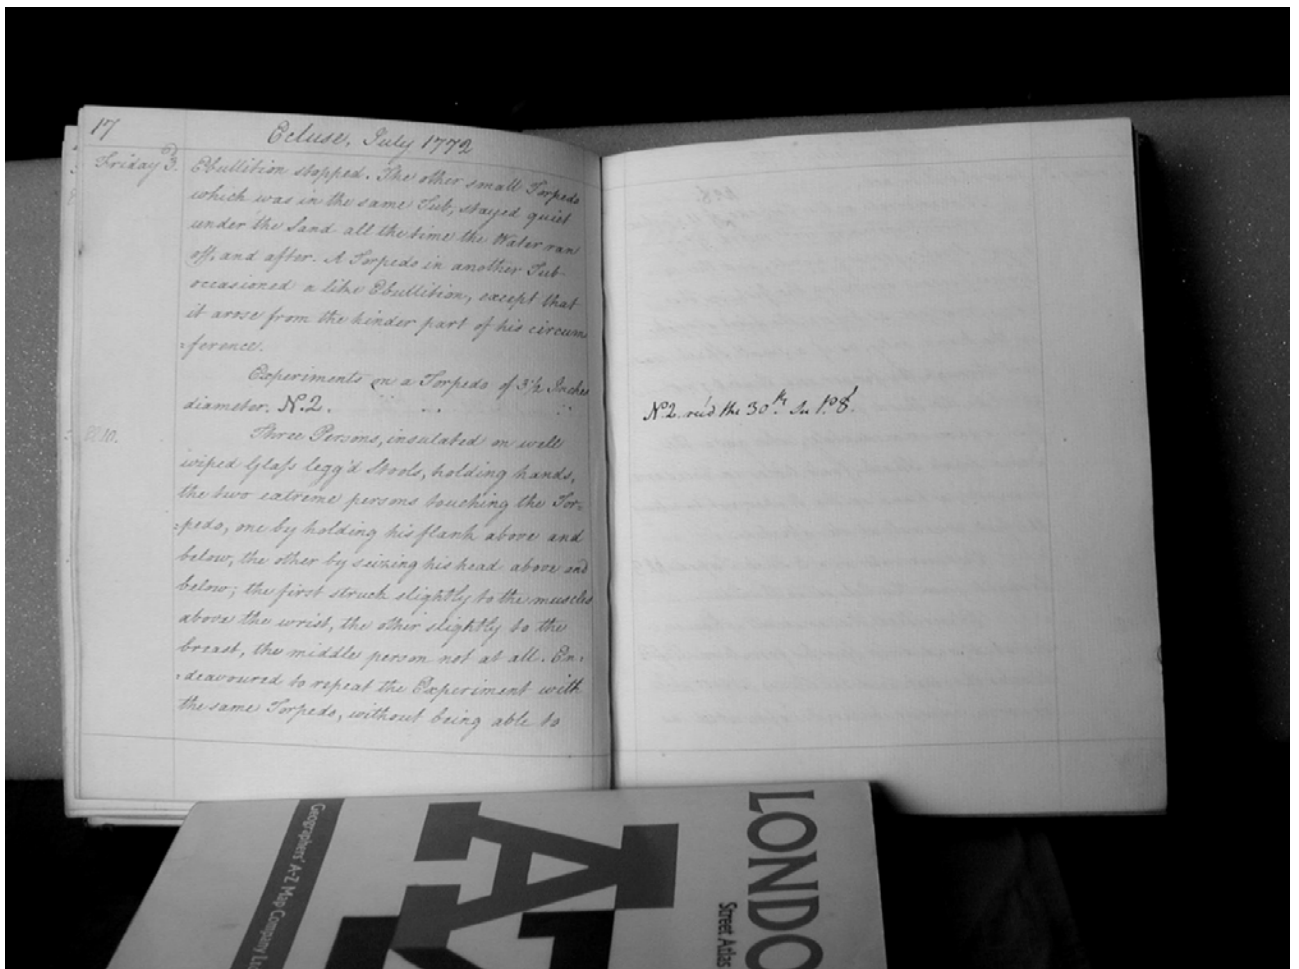 17
Ecluse, July 1772
Friday 3.
Ebullition stopped. The other small Torpedo
which was in the same Tub, stayed quiet
under the Sand all the time the Water ran
off, and after. A Torpedo in another Tub
occasioned a like Ebullition, except that
it arose from the hinder part of his circum
=ference.
Experiments on a Torpedo of 3½ Inches
diameter. N.2.
Three Persons, insulated on well
wiped Glass legg'd Stools, holding hands,
the two extreme persons touching the Tor=
=pedo, one by holding his flank above and
below, the other by seizing his head above and
below; the first struck slightly to the muscles
above the wrist, the other slightly to the
breast, the middle person not at all. En=
=deavoured to repeat the Experiment with
the same Torpedo, without being able to
N.2. rec'd the 30th. In
LONDO
Street Atlas
AZ
Geographers' A-Z Map Company Ltd